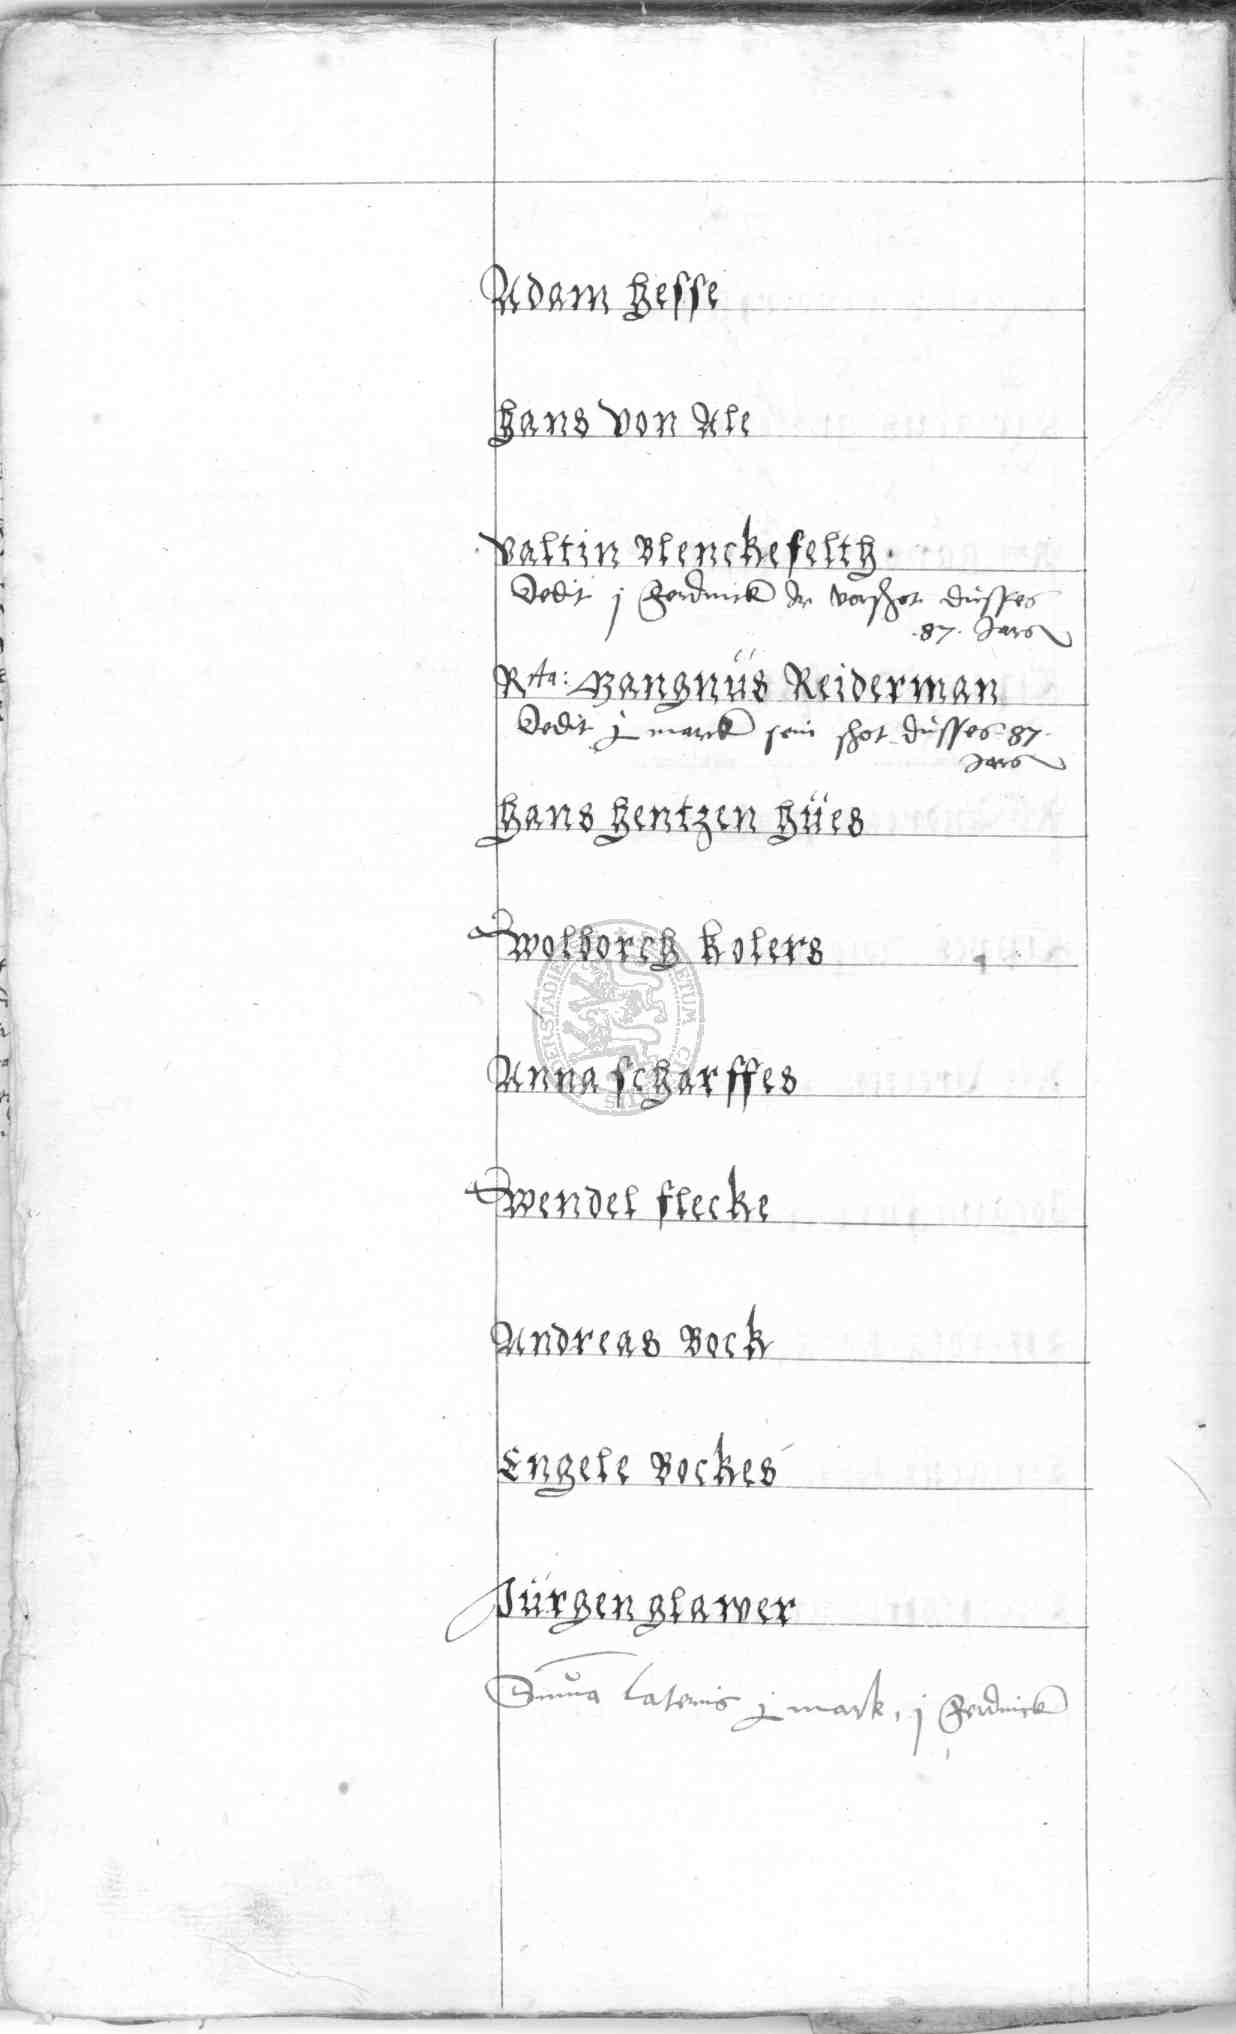 Adam Hesse
Hans von Ale
Valtin Blenckefelth.
Dedit j Ferdinck vorschot düsses
.87. Jars
Rta: Mangnüs Reiderman
Dedit j marck sein schot düsses 87.
Jars
Hans Hentzen Hües
Wolborch Kolers
Anna Scharffes
Wendel Flecke
Andreas Bock
Engele Bockes
Jürgen Glawer
Summa lateris j mark, j Ferdinck